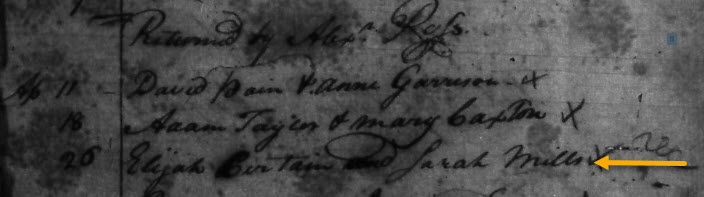 Returned by Alexr Ross.
Ap 11 - David Pain & Anne Garrison - x
18 Adam Taylor & Mary Caxton X
26 Elijah Certain and Sarah Mills